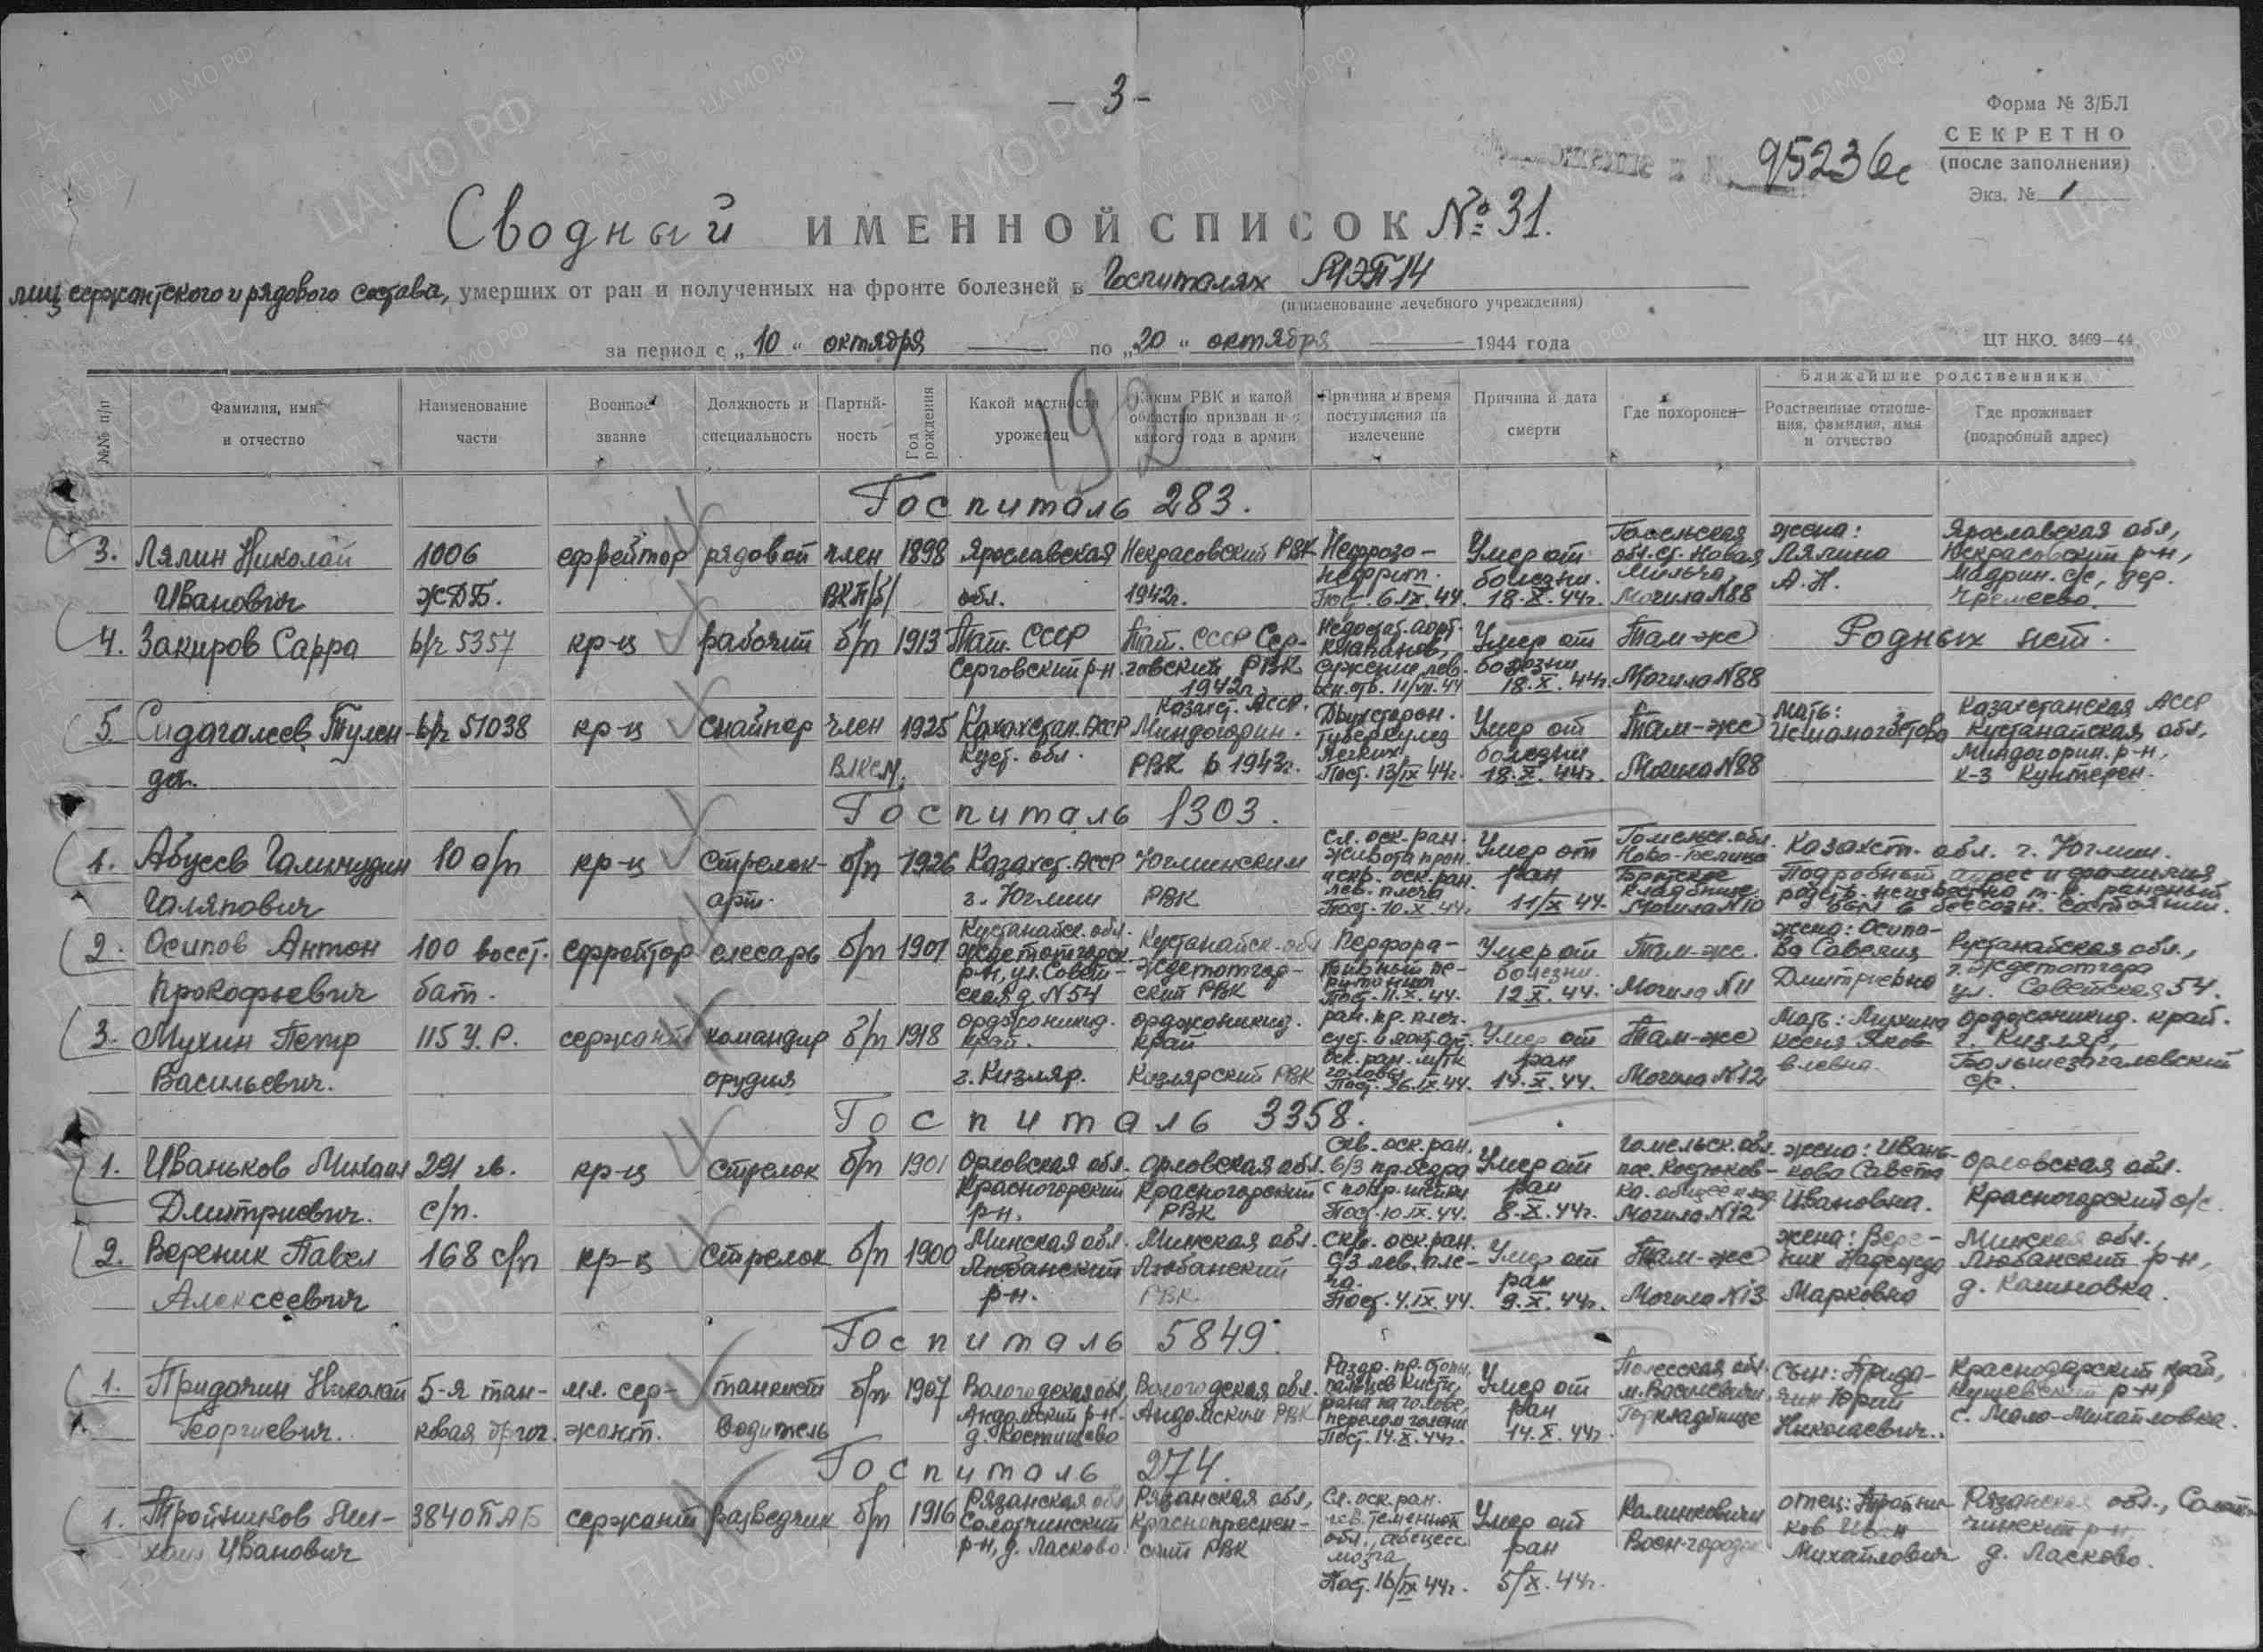 - 3 -
Форма № 3/БЛ
СЕКРЕТНО
(после заполнения)
Экз. № 1
95236с
Сводный ИМЕННОЙ СПИСОК № 31.
лиц сержантского и рядового состава, умерших от ран и полученных на фронте болезней в Госпиталях МЭП 14
(наименование лечебного учреждения)
за период с „10“ октября по „20“ октября 1944 года
ЦТ НКО. 3469—44
№№ п/п
Фамилия, имя и отчество
Наименование части
Военное звание
Должность и специальность
Партий-ность
Год рождения
Какой местности уроженец
Каким РВК и какой областью призван и с какого года в армии
Причина и время поступления на излечение
Причина и дата смерти
Где похоронен
Ближайшие родственники
Родственные отноше-ния, фамилия, имя и отчество
Где проживает (подробный адрес)
192
Госпиталь 283.
3. Лялин Николай Иванович
1006 ЖДБ.
ефрейтор
рядовой
член ВКП/б/
1898
Ярославская обл.
Некрасовский РВК 1942г.
Нефрозо-нефрит. Пост. 6.IX.44.
Умер от болезни. 18.X.44г.
обл. ст. Новая Мильча Могила N88
жена: Лялина А.Н.
Ярославская обл, Некрасовский р-н, с/с, дер.
4. Закиров Сарра
в/ч 5357
кр-ц
рабочий
б/п
1913
Тат. СССР Серговский р-н
Тат. СССР Сер-говский РВК 1942г.
Умер от болезни 18.X.44г.
Там-же Могила N88
Родных нет.
5. Сидагалеев Тулен-да.
в/ч 51038
кр-ц
снайпер
член ВЛКСМ.
1925
Казахстан. АССР Куст. обл.
Казахст. АССР. Миндогорин. РВК в 1943г.
Двухсторон. туберкулез легких Пост. 13/IX 44г.
Умер от болезни 18.X.44г.
Там-же Могила N88
мать:
Казахстанская АССР Кустанайская обл, Миндогорин. р-н, к-з Кунтерен.
Госпиталь 1303.
1. Абусев Галичудин Галяпович
10 а/п
кр-ц
стрелок- арт.
б/п
1926
Казахст. АССР г. Юглин
Юглинским РВК
Сл. оск. ран. живота прон. оск. ран. лев. плеча Пост. 10.X.44г
Умер от ран 11/X 44.
Гомельск. обл. Ново-Белица Братское кладбище Могила N10
Казахст. обл. г. Юглин. Подробный адрес и фамилия родств. неизвестно т.к. раненый был в бессозн. состоянии.
2. Осипов Антон Прокофьевич
100 восст. бат.
ефрейтор
слесарь
б/п
1901
Кустанайск. обл. р-н, ул. Совет-ская д. N54
Кустанайск. обл РВК
Перфора-тивный пе-ритонит Пост. 11.X.44.
Умер от болезни. 12.X.44.
Там-же. Могила N11
жена: Осипо-ва Савелия Дмитриевна
Кустанайская обл., ул. Советская 54.
3. Мухин Петр Васильевич.
115 У.Р.
сержант
командир орудия
б/п
1918
орджоникид. край. г. Кизляр.
орджоникид. край Кизлярский РВК
ран. пр. плеч. оск. ран. мягк головы Пост. 26.IX.44.
Умер от ран 14.X.44.
Там-же Могила N12
Мать: ксеня Яков-левна.
орджоникид. край. г. Кизляр, с/с.
Госпиталь 3358.
1. Иваньков Михаил Дмитриевич.
291 гв. с/п.
кр-ц
стрелок
б/п
1901
Орловская обл. Красногорский р-н.
Орловская обл. Красногорский РВК
Скв. оск. ран. в/3 пр. бедра Пост. 10.IX.44.
Умер от ран 8.X.44г.
Гомельск. обл. пос. Костюков-ка. Могила N12
жена: Ивань-кова Савета Ивановна.
Орловская обл. Красногорский с/с.
2. Вереник Павел Алексеевич
168 с/п
кр-ц
стрелок
б/п
1900
Минская обл. Любанский р-н.
Минская обл. Любанский РВК
Скв. оск. ран. с/3 лев. пле-ча. Пост. 4.IX.44.
Умер от ран 9.X.44г.
Там-же Могила N13
жена: Вере-ник Надежда Марковна
Минская обл., Любанский р-н, д. Калиновка.
Госпиталь 5849.
1. Придачин Николай Георгиевич.
5-я тан-ковая бриг.
мл. сер-жант.
танкист водитель
б/п
1907
Вологодская обл, Андомский р-н. д. Костищево
Вологодская обл. Андомским РВК
Раздр. пр. стопы, пальцев кисти, рана на голове, перелом голени Пост. 14.X.44г.
Умер от ран 14.X.44г.
Полесская обл. м. Василевичи, Горкладбище
сын: Юрий Николаевич.
Краснодарский край, Кущевский р-н, с. Мало-Михайловка.
Госпиталь 274.
1. Тройников Ми-хаил Иванович
384 ОПАБ
сержант
разведчик
б/п
1916
Рязанская обл Солотчинский р-н, д. Ласково.
Рязанская обл, Краснопреснен-ский РВК
Сл. оск. ран. лев. теменной обл., абсцесс мозга Пост. 16/IX 44г.
Умер от ран 5/X.44г.
Калинковичи Воен-городок
отец: Тройни-ков Иван Михайлович
Рязанская обл., р-н д. Ласково.
ЦА МО РФ
ПАМЯТЬ НАРОДА